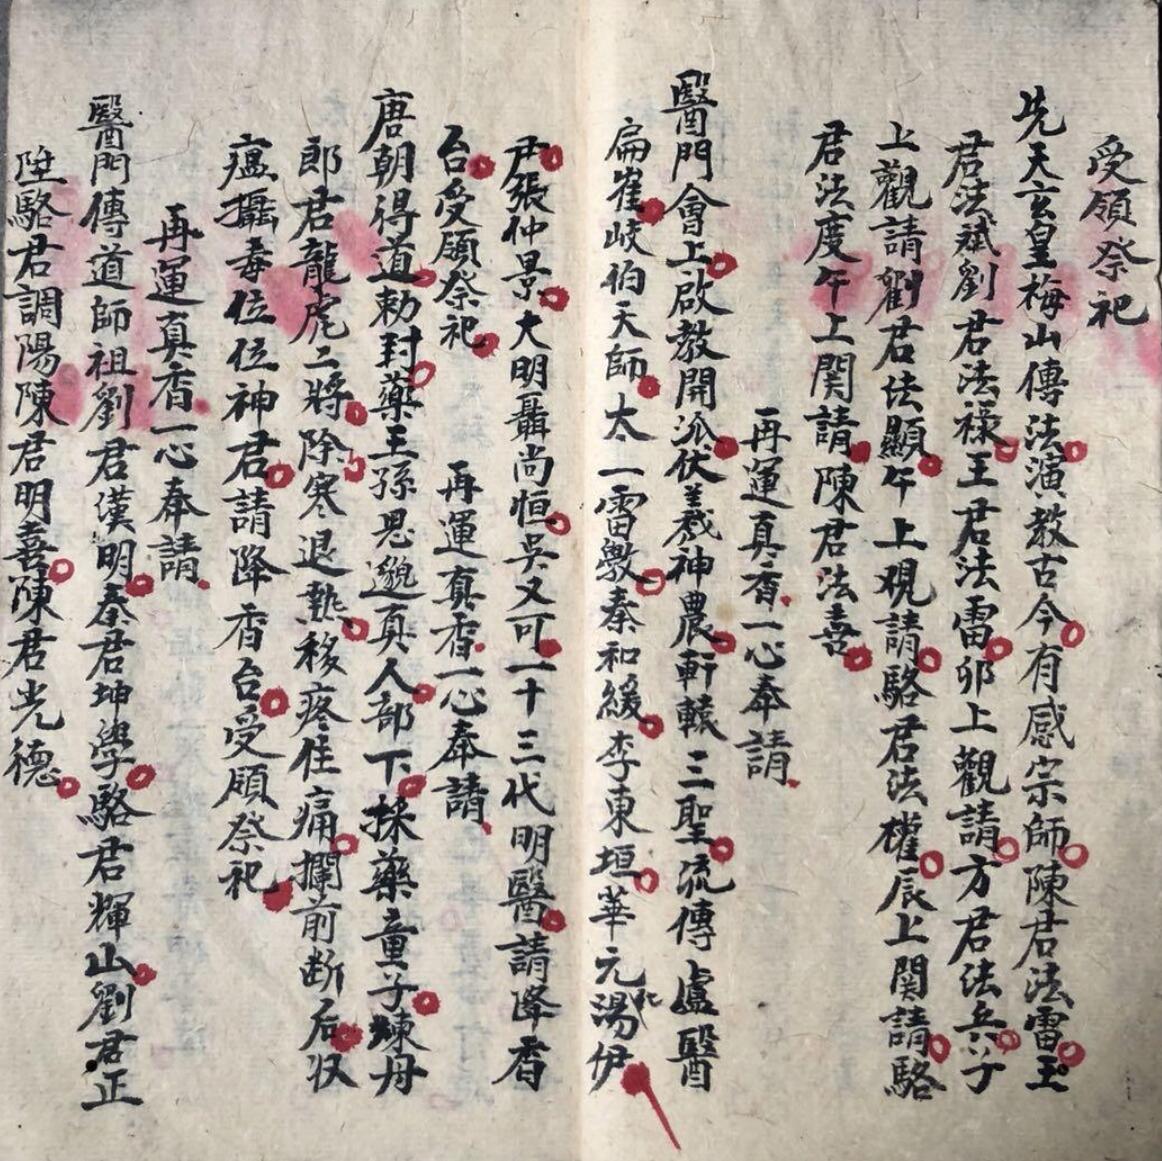 受領祭祀
先天玄皇梅山傳法演教古今有感宗師陳君法雷王
君法斌劉君法祿王君法雷卯上觀請方君法兵子
上觀請劉君法顯午上观請駱君法權辰上関請駱
君法度午上関請陳君法喜
再運真香一心奉請
醫門會上啟教開派伏羲神農軒轅三聖流傳盧醫
扁雀岐伯天師太一雷斆秦和緩李東垣華元化湯伊
尹張仲景大明聶尚恒吳又可一十三代明醫請降香
台受領祭祀 再運真香一心奉請
唐朝得道勅封藥王孫思邈真人部下採藥童子煉丹
郎君龍虎二將除寒退熱移疼住痛攔前断后収
瘟攝毒位位神君請降香台受領祭祀
再運真香一心奉請
醫門傳道師祖劉君漢明秦君坤學駱君輝山劉君正
陞駱君調陽陳君明喜陳君光德